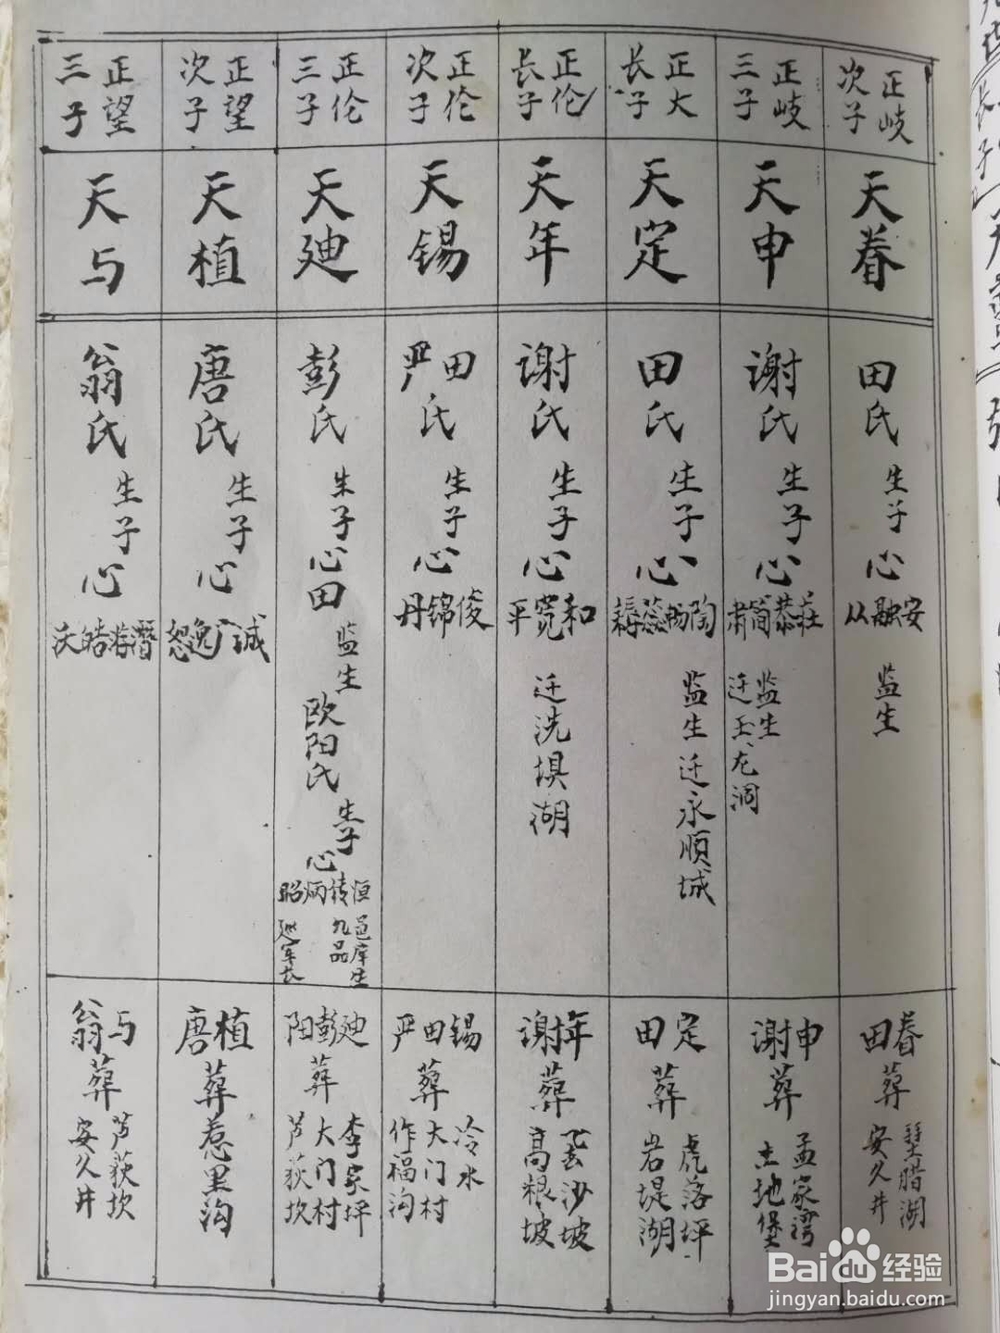 正岐次子
天眷
田氏
生子心
安融从
监生
眷田葬
垦腊湖
安久井
正岐三子
天申
谢氏
生子心
庄恭简肃
监生
迁玉龙洞
申谢葬
孟家湾
土地堡
正大长子
天定
田氏
生子心
陶畅蕊耨
监生迁永顺城
定田葬
虎落坪
岩堤湖
正伦长子
天年
谢氏
生子心
和宽平
迁洗埧湖
年谢葬
飞沙坡
高粮坡
正伦次子
天锡
田严氏
生子心
俊锦丹
锡田严葬
冷水
大门村
作福沟
正伦三子
天廸
彭氏
生子心田
监生
欧阳氏
生子心
恒转炳昭
邑庠生
九品
巡军长
廸彭阳葬
李家坪
大门村
芦荻坎
正望次子
天植
唐氏
生子心
诚广逸恕
植唐葬惹里沟
正望三子
天与
翁氏
生子心
潛游皓沃
与翁葬
芦荻坎
安久井
长子
Baidu经验
jingyan.baidu.com